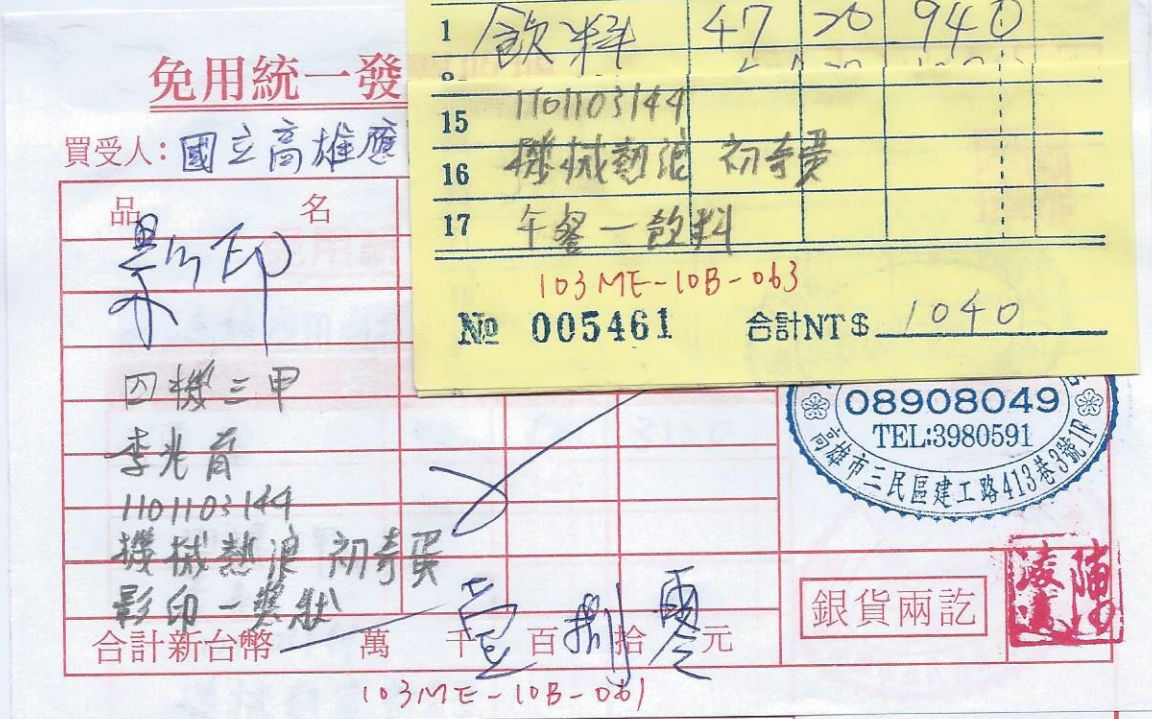 1 飲料 47 20 940
15 1101103144
16 機械熱浪 初奇蛋
17 午餐一飲料
103ME-10B-063
№ 005461 合計NT$ 1040
免用統一發
買受人: 國立高雄應
品名
影印
四機三甲
李兆育
1101103144
機械熱浪 初奇蛋
影印一獎狀
合計新台幣 萬 千 壹 百 捌 拾 零 元
103ME-10B-061
08908049
TEL:3980591
高雄市三民區建工路413巷3號1F
銀貨兩訖